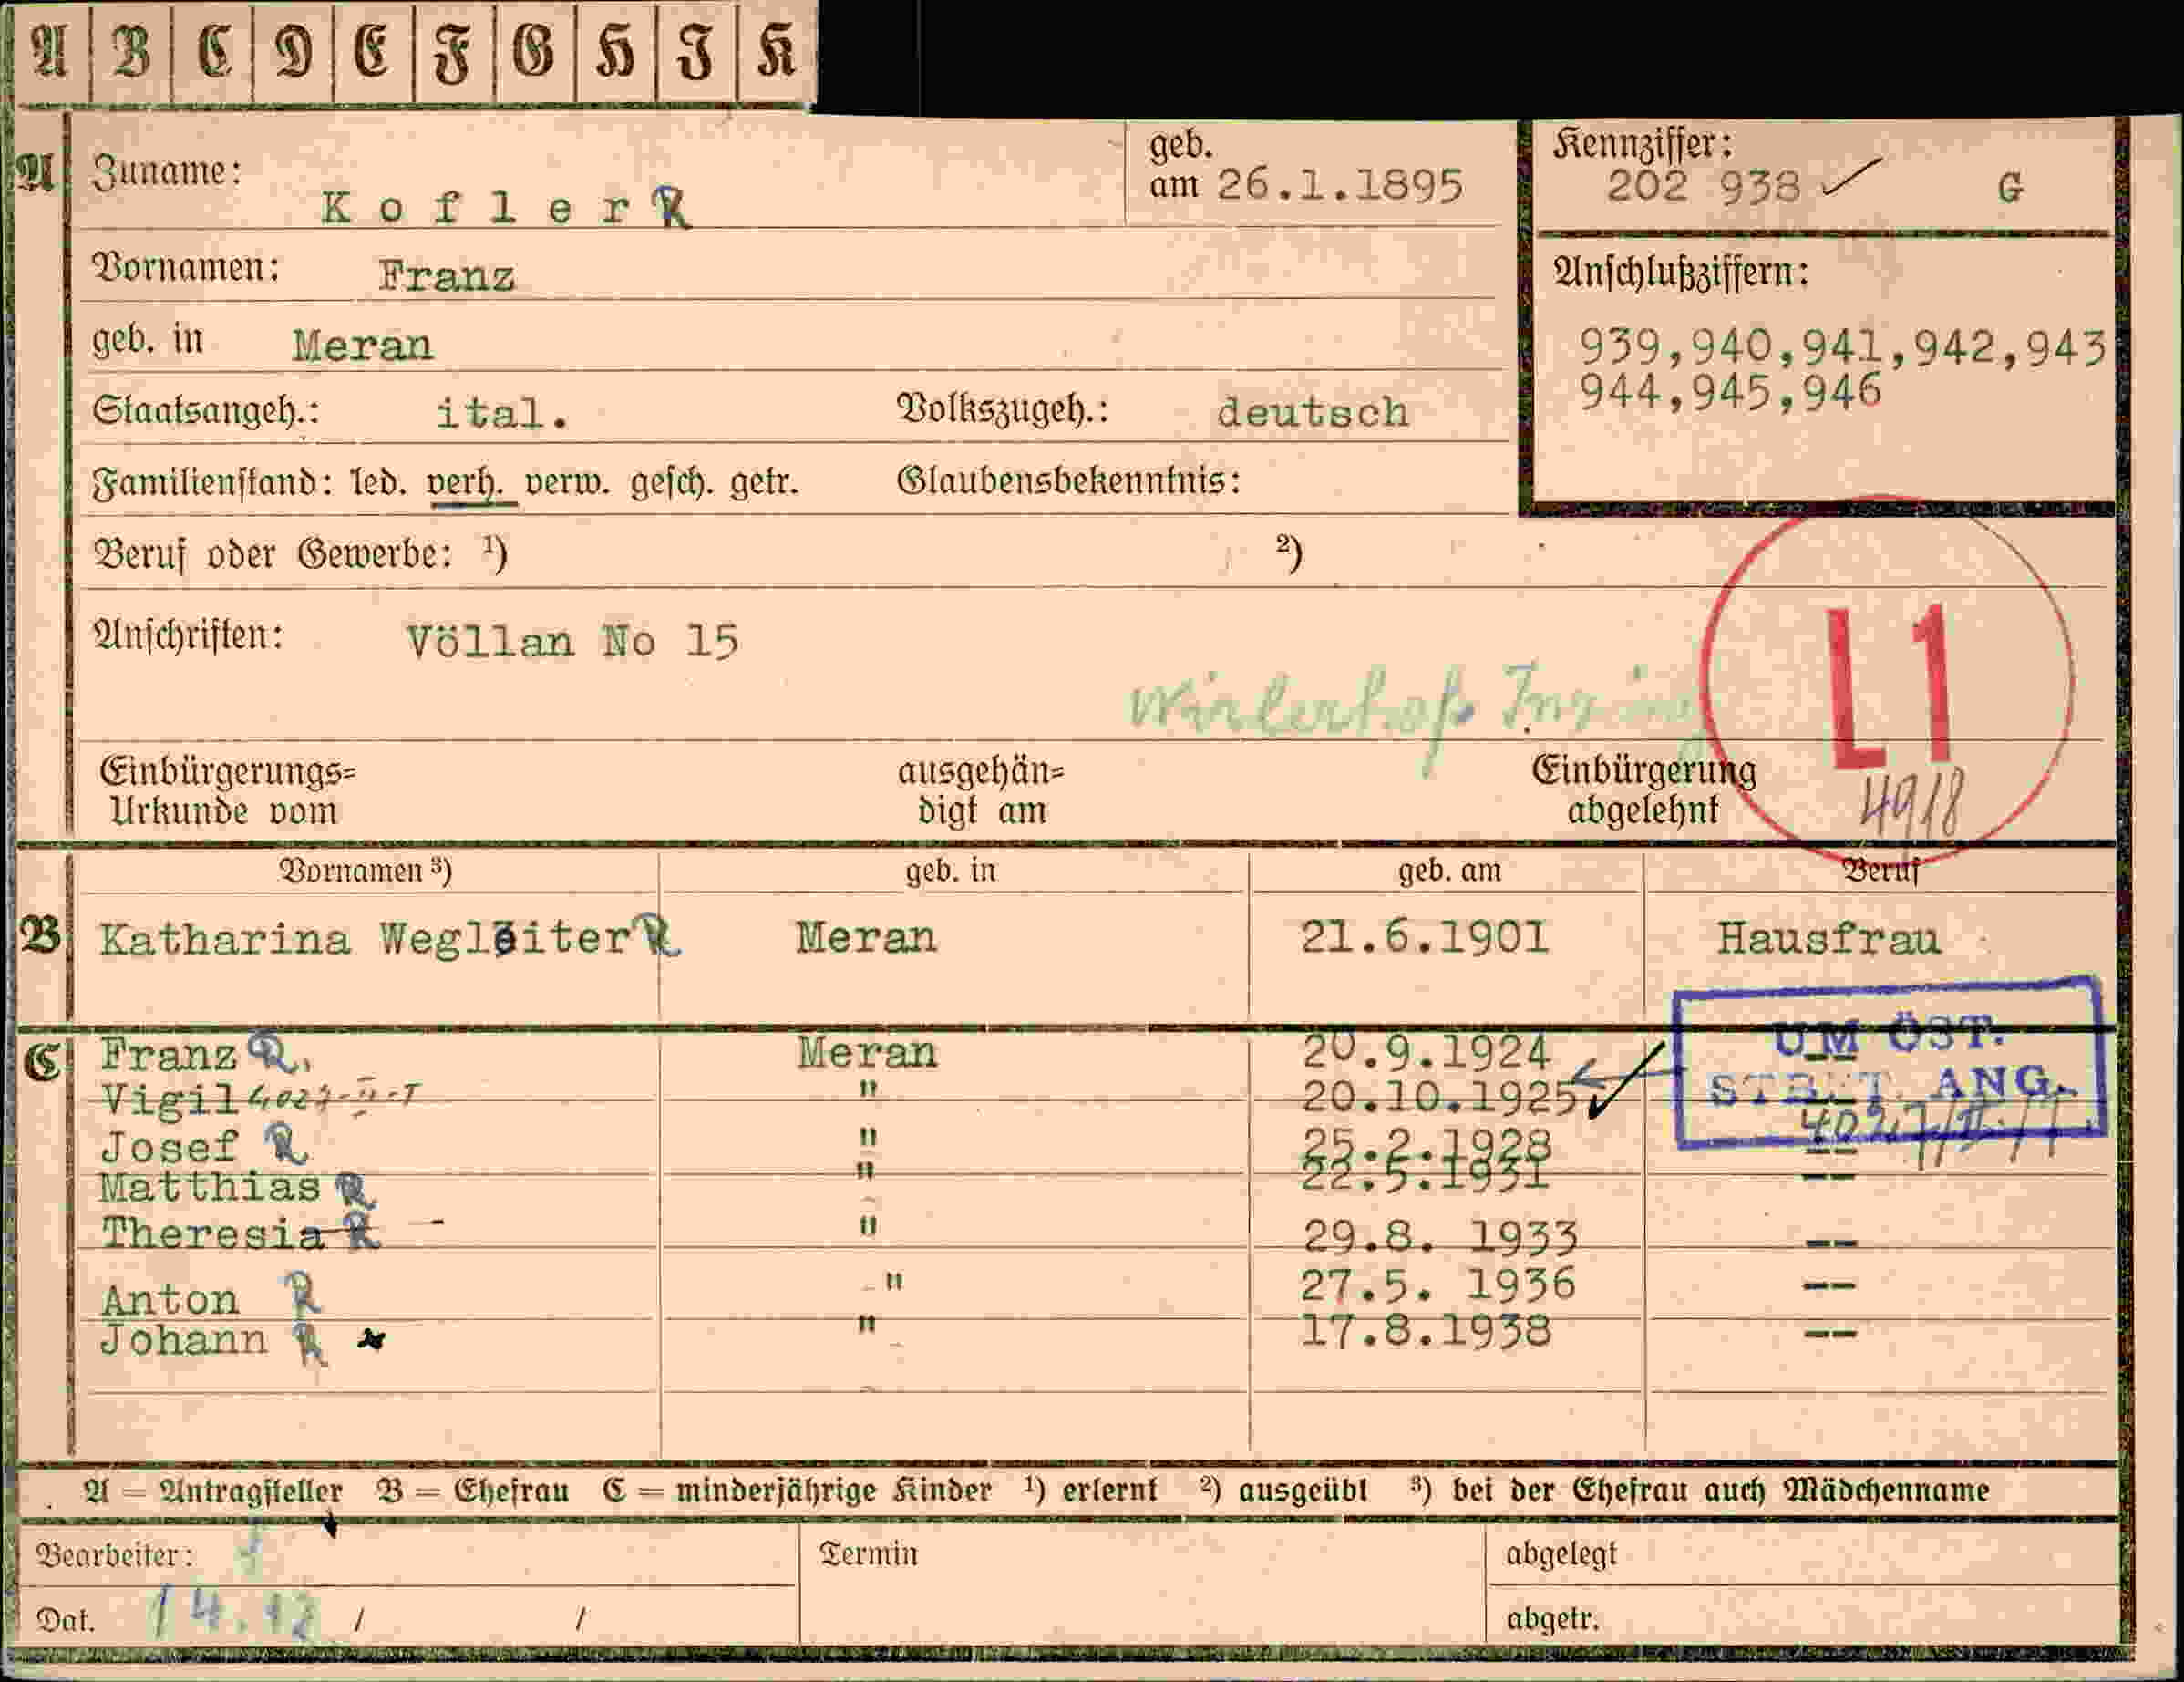 A B C D E F G H I K
A Zuname: Kofler R geb. am 26.1.1895
Kennziffer: 202 938 G
Vornamen: Franz
Anschlußziffern:
939,940,941,942,943
944,945,946
geb. in Meran
Staatsangeh.: ital. Volkszugeh.: deutsch
Familienstand: led. verh. verw. gesch. getr. Glaubensbekenntnis:
Beruf oder Gewerbe: ¹) ²)
Anschriften: Völlan No 15
L1
Einbürgerungs= Urkunde vom ausgehän= digt am Einbürgerung abgelehnt 4918
Vornamen ³) geb. in geb. am Beruf
B Katharina Wegleiter R Meran 21.6.1901 Hausfrau
UM ÖST.
ANG.
C Franz R, Meran 20.9.1924 --
Vigil 4027-II-T " 20.10.1925 --
Josef R " 25.2.1928 --
Matthias R " 22.5.1931 --
Theresia R - " 29.8. 1933 --
Anton R " 27.5. 1936 --
Johann R " 17.8.1938 --
A = Antragsteller B = Ehefrau C = minderjährige Kinder ¹) erlernt ²) ausgeübt ³) bei der Ehefrau auch Mädchenname
Bearbeiter: Termin abgelegt
Dat. 14.12 / / abgetr.